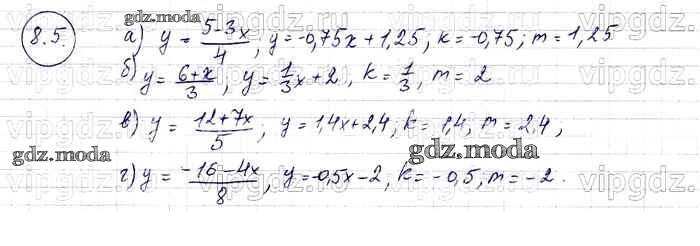 8.5.
а) y = (5-3x)/4, y = -0,75x + 1,25; k = -0,75; m = 1,25
б) y = (6+x)/3, y = 1/3 x + 2, k = 1/3, m = 2
в) y = (12+7x)/5; y = 1,4x + 2,4, k = 1,4, m = 2,4;
г) y = (-16-4x)/8, y = -0,5x - 2, k = -0,5; m = -2.
gdz.moda
gdz.moda
gdz.moda
vipgdz.
vipgdz.
vipgdz.
vipgdz.